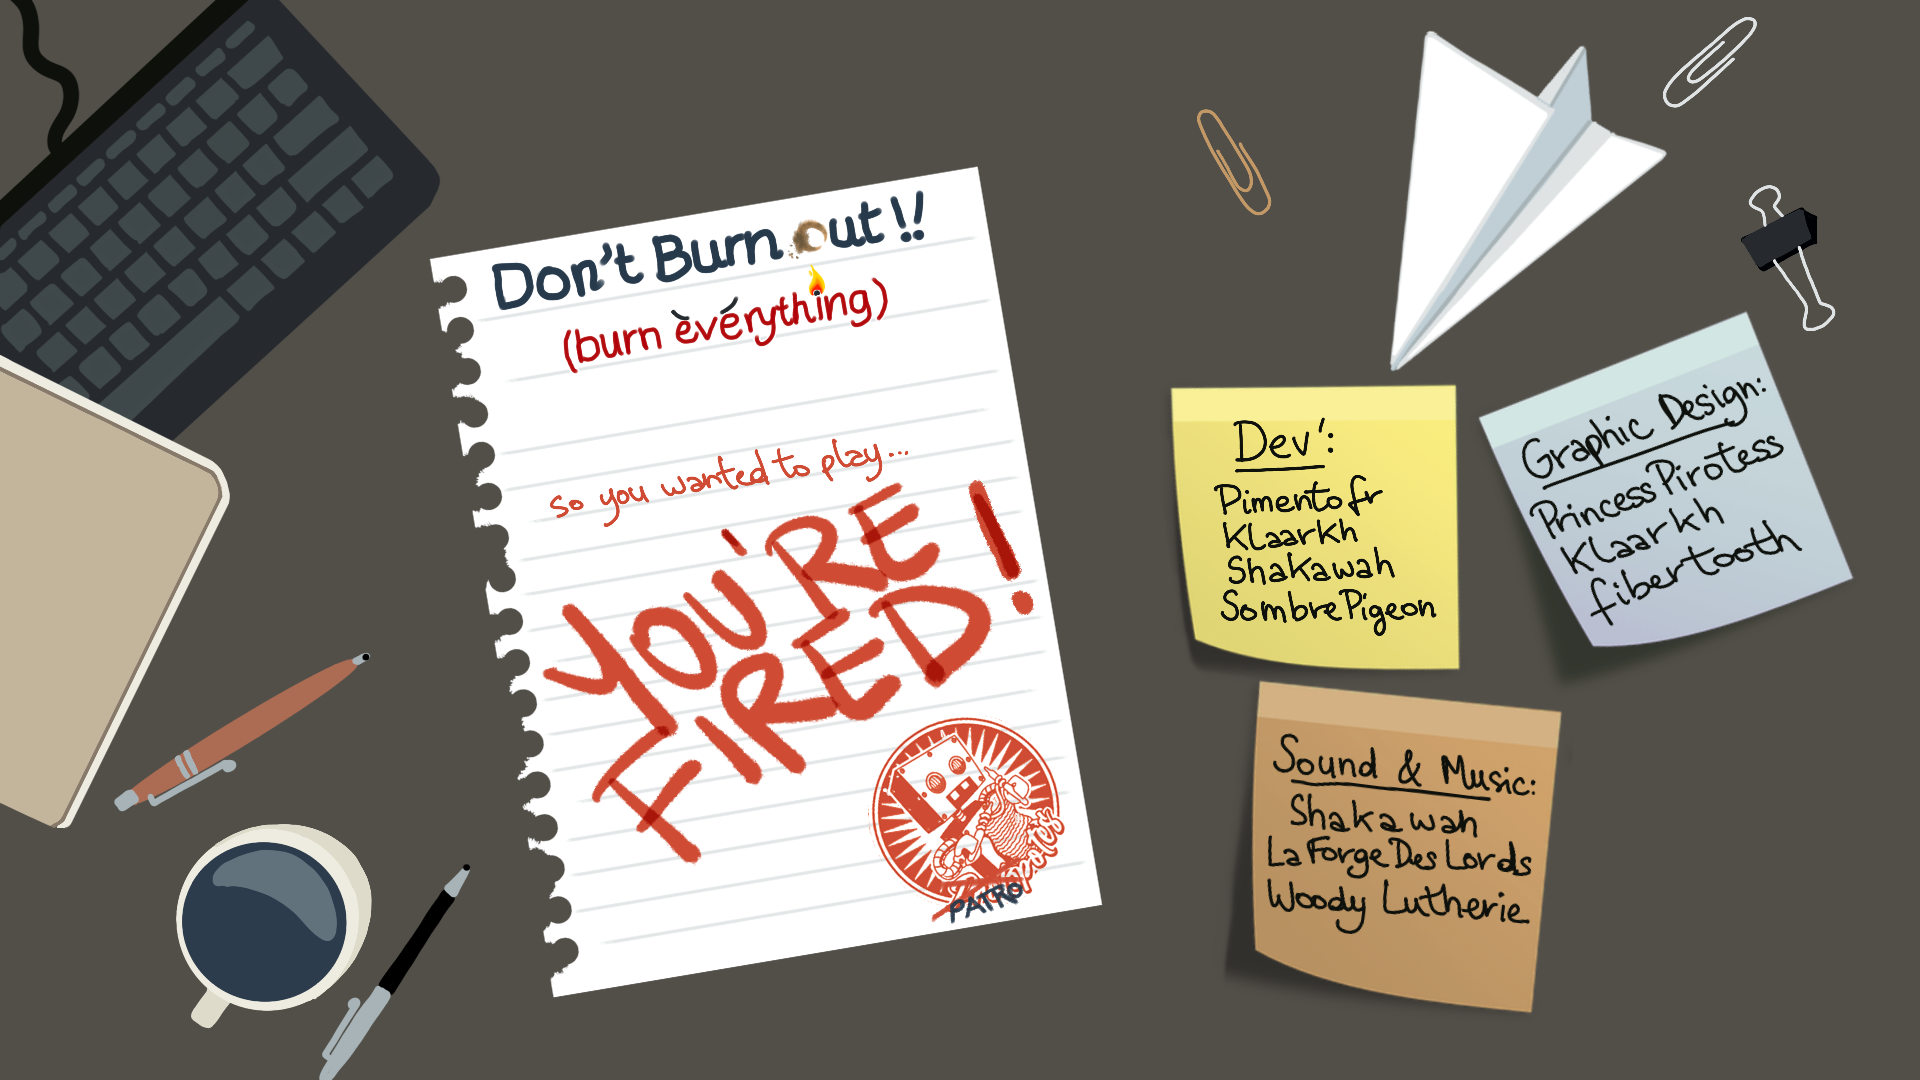 Don't Burn out!!
(burn everything)
so you wanted to play...
YOU'RE
FIRED!
PATRO
Dev':
Pimentofr
Klaarkh
Shakawah
SombrePigeon
Graphic Design:
PrincessPirotess
Klaarkh
fibertooth
Sound & Music:
Shakawah
LaForgeDesLords
Woody Lutherie